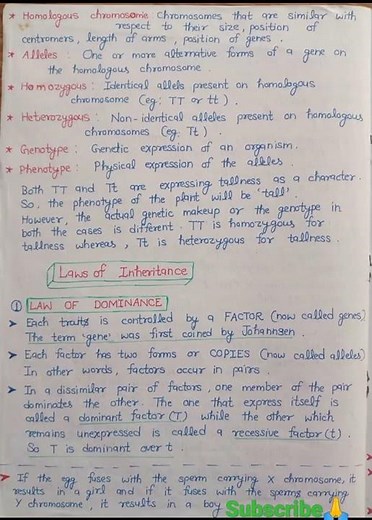 * Homologous chromosome: Chromosomes that are similar with
respect to their size, position of
centromers, length of arms, position of genes.
* Alleles : One or more alternative forms of a gene on
the homologous chromosome.
* Homozygous : Identical allels present on homologous
chromosome (eg: TT or tt).
* Heterozygous : Non-identical alleles present on homologous
chromosomes (eg: Tt).
* Genotype : Genetic expression of an organism.
* Phenotype : Physical expression of the alleles.
Both TT and Tt are expressing tallness as a character.
So, the phenotype of the plant will be 'tall'.
However, the actual genetic makeup or the genotype in
both the cases is different. TT is homozygous for
tallness whereas, Tt is heterozygous for tallness.
Laws of Inheritance
① LAW OF DOMINANCE
➤ Each traits is controlled by a FACTOR (now called genes)
The term 'gene' was first coined by Johannsen.
➤ Each factor has two forms or COPIES (now called alleles)
In other words, factors occur in pairs.
➤ In a dissimilar pair of factors, one member of the pair
dominates the other. The one that express itself is
called a dominant factor (T) while the other which
remains unexpressed is called a recessive factor (t).
So T is dominant over t.
➤ If the egg fuses with the sperm carrying X chromosome, it
results in a girl and if it fuses with the sperms carrying
Y chromosome, it results in a boy
Subscribe🙏